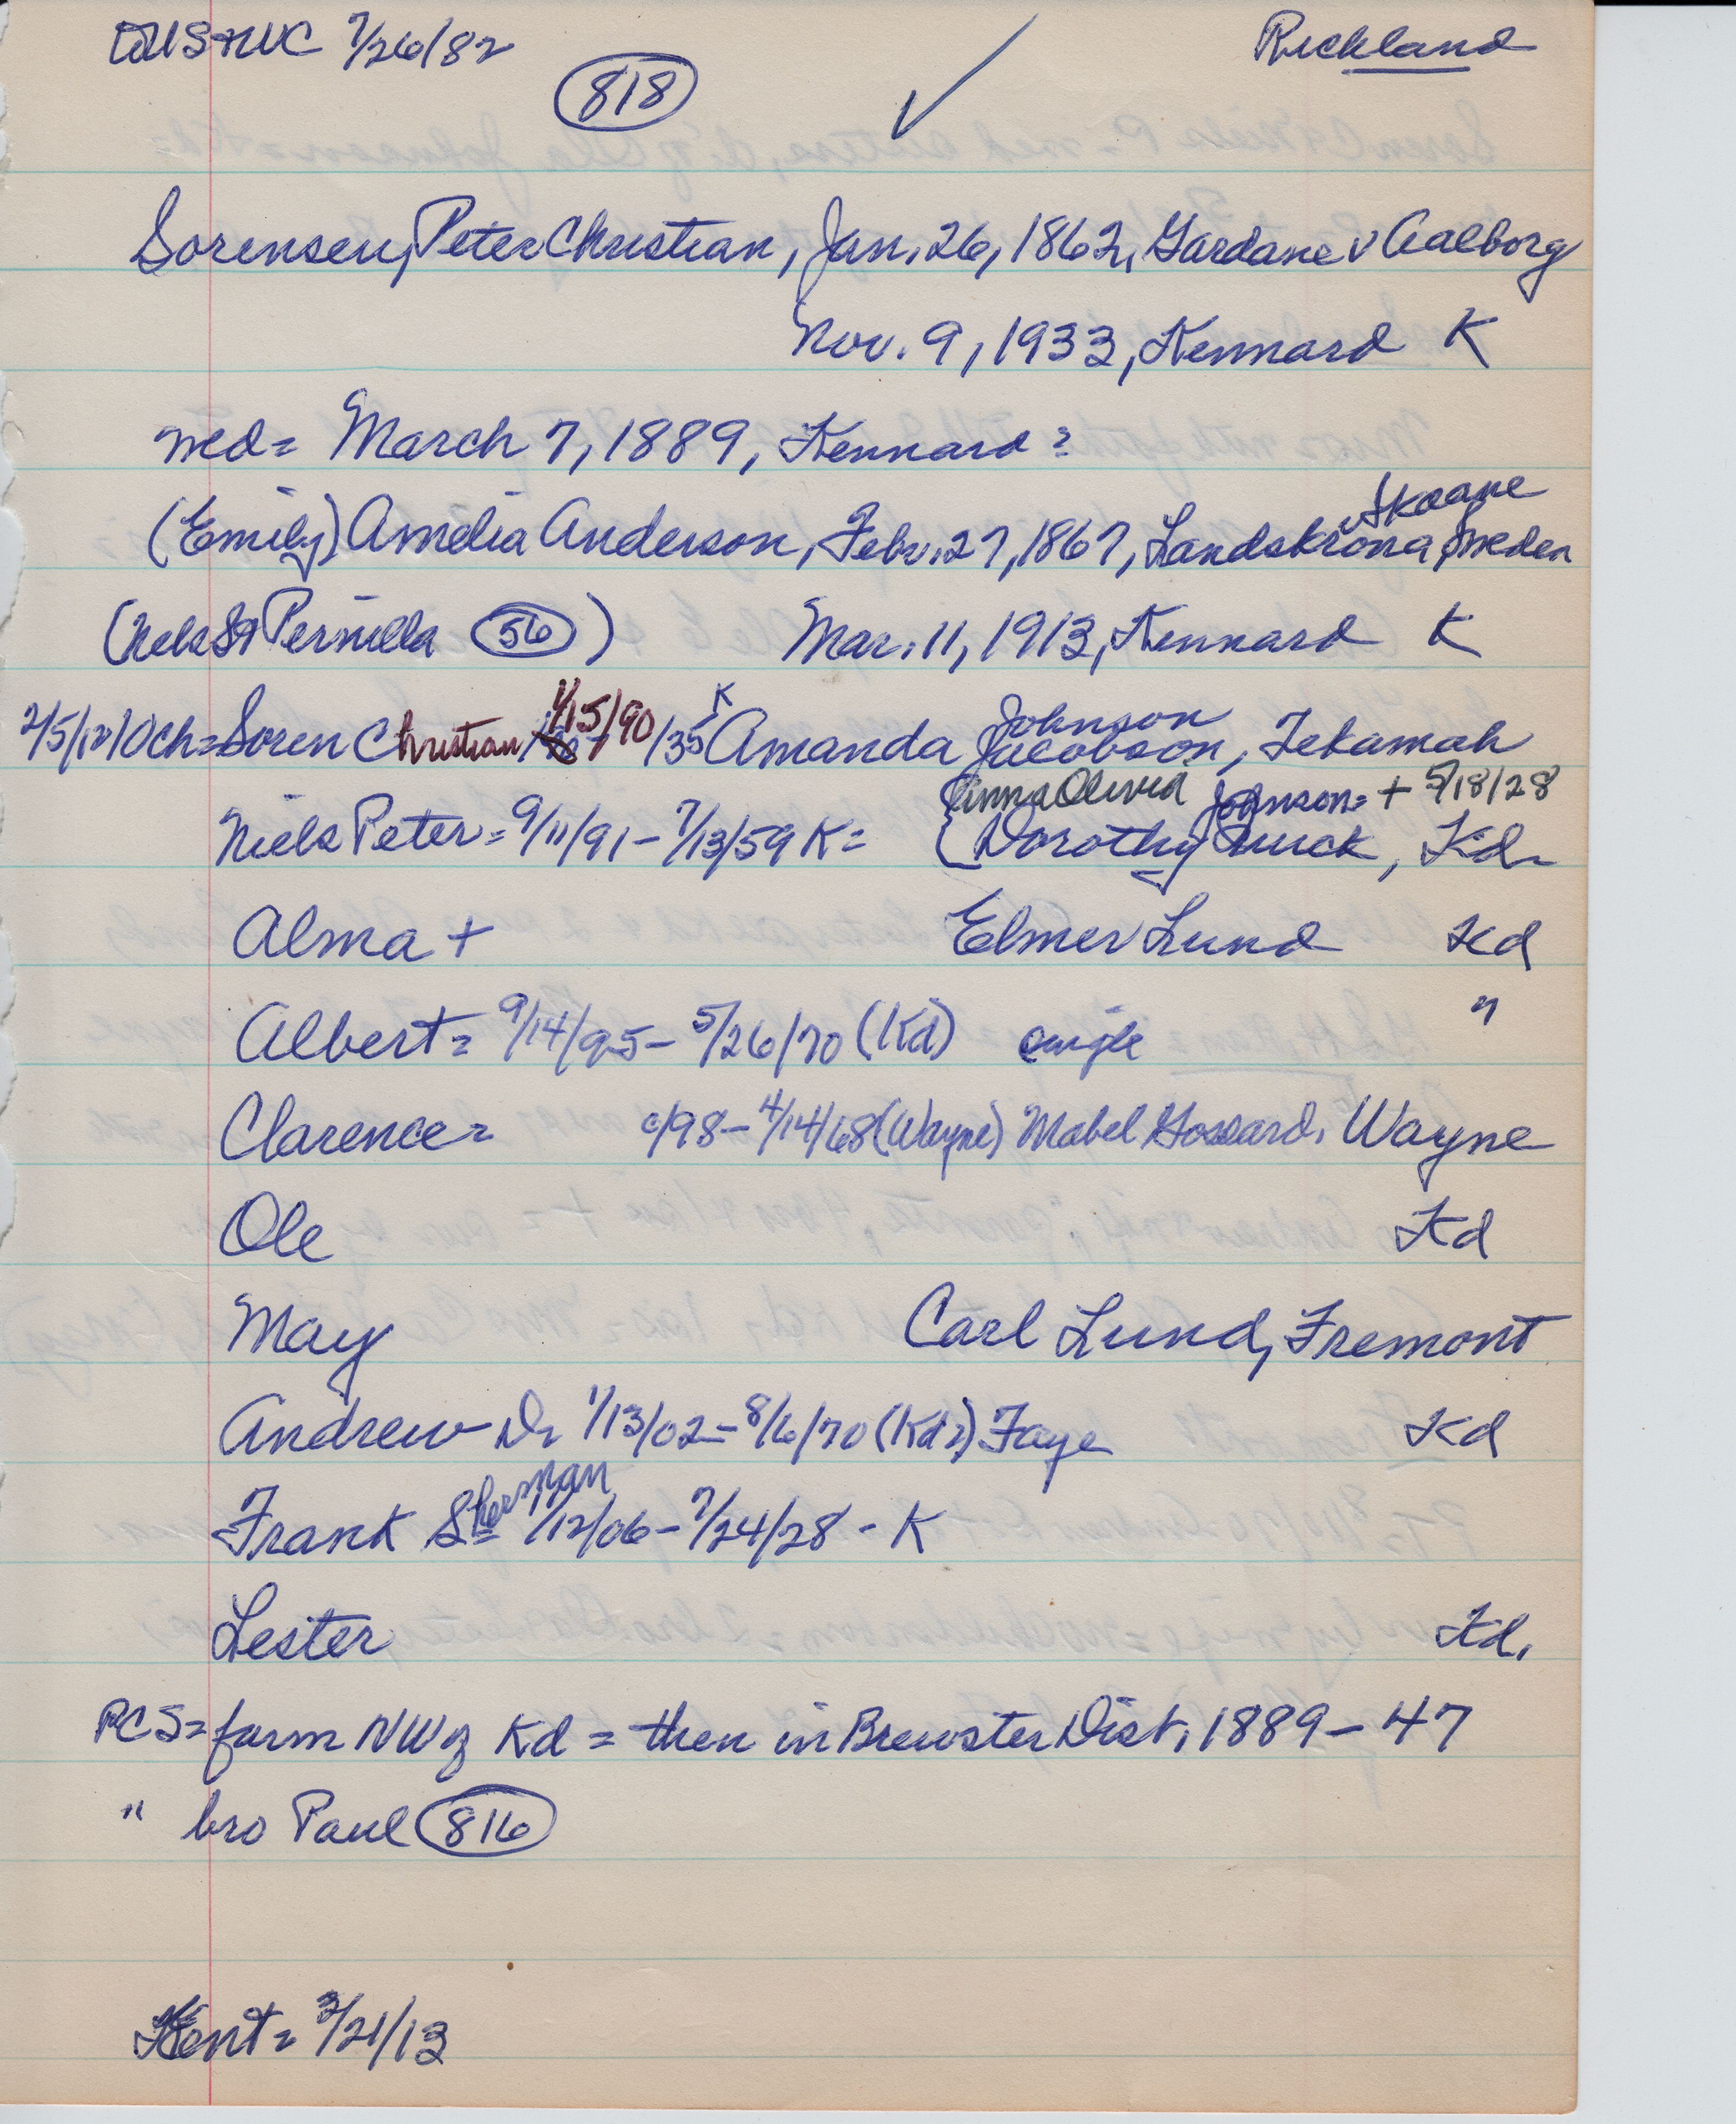 7/26/82 Richland
818 ✓
Sorensen, Peter Christian, Jan. 26, 1862, Gardane v Aalborg
Nov. 9, 1933, Kennard K
wed= March 7, 1889, Kennard?
v Skaane
(Emily) Amelia Anderson, Febr. 27, 1867, Landskrona, Sweden
(Nels S & Pernilla 56) Mar. 11, 1913, Kennard K
1/15/90 K Johnson
10ch= Soren Christian /35 Amanda Jacobson, Tekamah
Anna Olivia Johnson= + 5/18/28
Niels Peter= 9/11/91 - 7/13/59 K= Dorothy, Kd-
Alma + Elmer Lund Kd
Albert= 9/14/95 - 5/26/70 (Kd) single "
Clarence= c/98 - 4/14/68 (Wayne) Mabel Wayne
Ole Kd
May Carl Lund, Fremont
Andrew 1/13/02 - 8/6/70 (Kd?) Faye Kd
Sherman
Frank /12/06 - 7/24/28 - K
Lester Kd.
PCS= farm NW of Kd = then in Brewster Dist. 1889 - 47
" bro Paul 816
Kent= 3/21/13